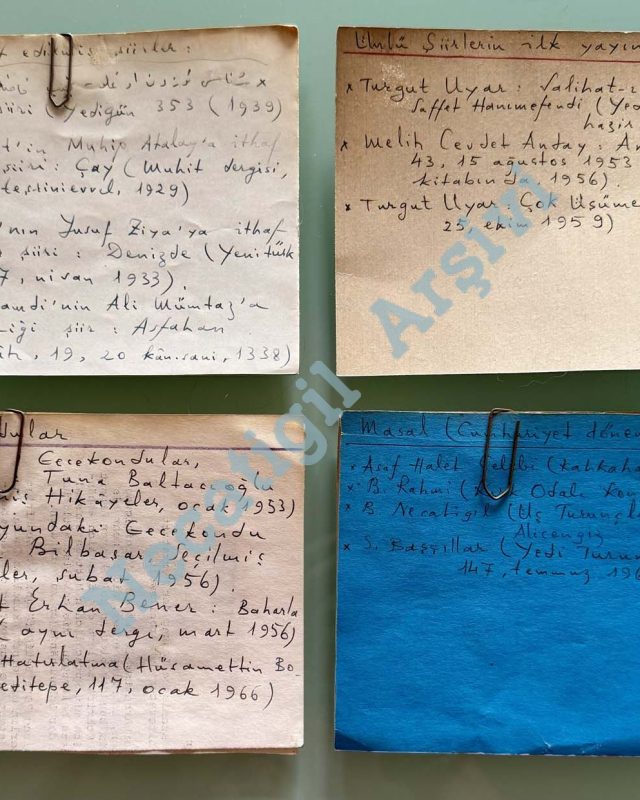 edilmiş şiirler :
şiiri (Yedigün 353 (1939)
t'in Muhip Atalay'a ithaf
şiiri : Çay (Muhit dergisi,
teşrinievvel, 1929)
'nın Yusuf Ziya'ya ithaf
şiiri : Denizde (Yenitürk
7, nisan 1933).
amdi'nin Ali Mümtaz'a
ği şiir : Asfahan
h, 19, 20 kân.sani, 1338)
Ünlü Şiirlerin ilk yayın
x Turgut Uyar : Salihat-ı
Saffet Hanımefendi (Yed
hazir
x Melih Cevdet Anday : An
43, 15 ağustos 1953
kitabında, 1956).
x Turgut Uyar, Çok Üşüme
25, ekim 1959)
dular
Gecekondular,
Tuna Baltacıoğlu
miş Hikâyeler, ocak 1953)
yundaki Gecekondu
Bilbaşar Seçilmiş
ler, şubat 1956).
t Erhan Bener : Baharla
( aynı dergi, mart 1956)
Hatırlatma (Hüsamettin Bo-
editepe, 117, ocak 1966)
Masal (Cumhuriyet dönem
x Asaf Halet Çelebi (Kahkaha
x B. Rahmi ( Odalı Kon
x B. Necatigil (Üç Turunçl
Alicengiz
x S. Başşıllar (Yedi Turun
147, temmuz 196
Necatigil Arşivi